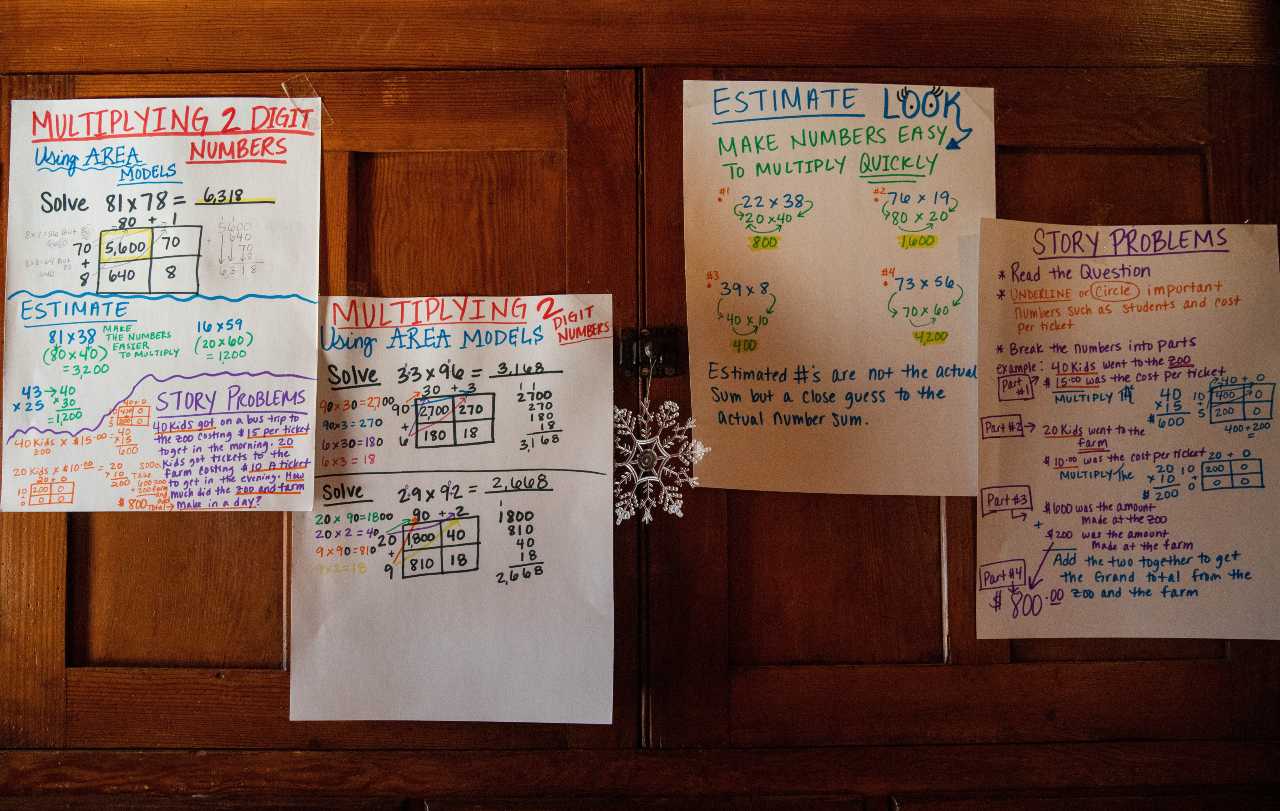 MULTIPLYING 2 DIGIT
NUMBERS
Using AREA
MODELS
Solve 81 x 78 = 6,318
80 + 1
70 5,600 70
+
8 640 8
5600
640
70
8
6318
ESTIMATE
81 x 38
(80 x 40)
= 3,200
MAKE
THE NUMBERS
EASIER
TO MULTIPLY
16 x 59
(20 x 60)
= 1,200
43 → 40
x 25 x 30
= 1,200
STORY PROBLEMS
40 Kids got on a bus trip to
the zoo costing $15 per ticket
to get in the morning. 20
Kids got tickets to the
farm costing $10 A ticket
to get in the evening. How
much did the zoo and farm
make in a day?
40 Kids x $15.00 = 40
x 15
600
20 Kids x $10.00 = 20
x 10
200
20 + 0
10 200 0
+
0 0 0
$800 Total →
MULTIPLYING 2
DIGIT
NUMBERS
Using AREA MODELS
Solve 33 x 96 = 3,168
90 x 30 = 2,700
90 x 3 = 270
6 x 30 = 180
6 x 3 = 18
30 + 3
90 2700 270
+
6 180 18
1 1
2700
270
180
18
3,168
Solve 29 x 92 = 2,668
20 x 90 = 1800
20 x 2 = 40
9 x 90 = 810
9 x 2 = 18
90 + 2
20 1800 40
+
9 810 18
1
1800
810
40
18
2,668
ESTIMATE LOOK
MAKE NUMBERS EASY
TO MULTIPLY QUICKLY
#1 22 x 38
20 x 40
800
#2 76 x 19
80 x 20
1,600
#3 39 x 8
40 x 10
400
#4 73 x 56
70 x 60
4,200
Estimated #'s are not the actual
sum but a close guess to the
actual number sum.
STORY PROBLEMS
* Read the Question
* UNDERLINE or Circle important
numbers such as students and cost
per ticket
* Break the numbers into parts
example: 40 Kids went to the zoo
Part #1
$ 15.00 was the cost per ticket
MULTIPLY
40
x 15
$ 600
40 + 0
10 400 0
+
5 200 0
400 + 200
=
Part #2 → 20 Kids went to the
farm
$ 10.00 was the cost per ticket
MULTIPLY the
20
x 10
$ 200
20 + 0
10 200 0
+
0 0 0
Part #3
$600 was the amount
made at the zoo
+
$200 was the amount
made at the farm
Add the two together to get
the Grand total from the
zoo and the farm
Part #4
$ 800.00